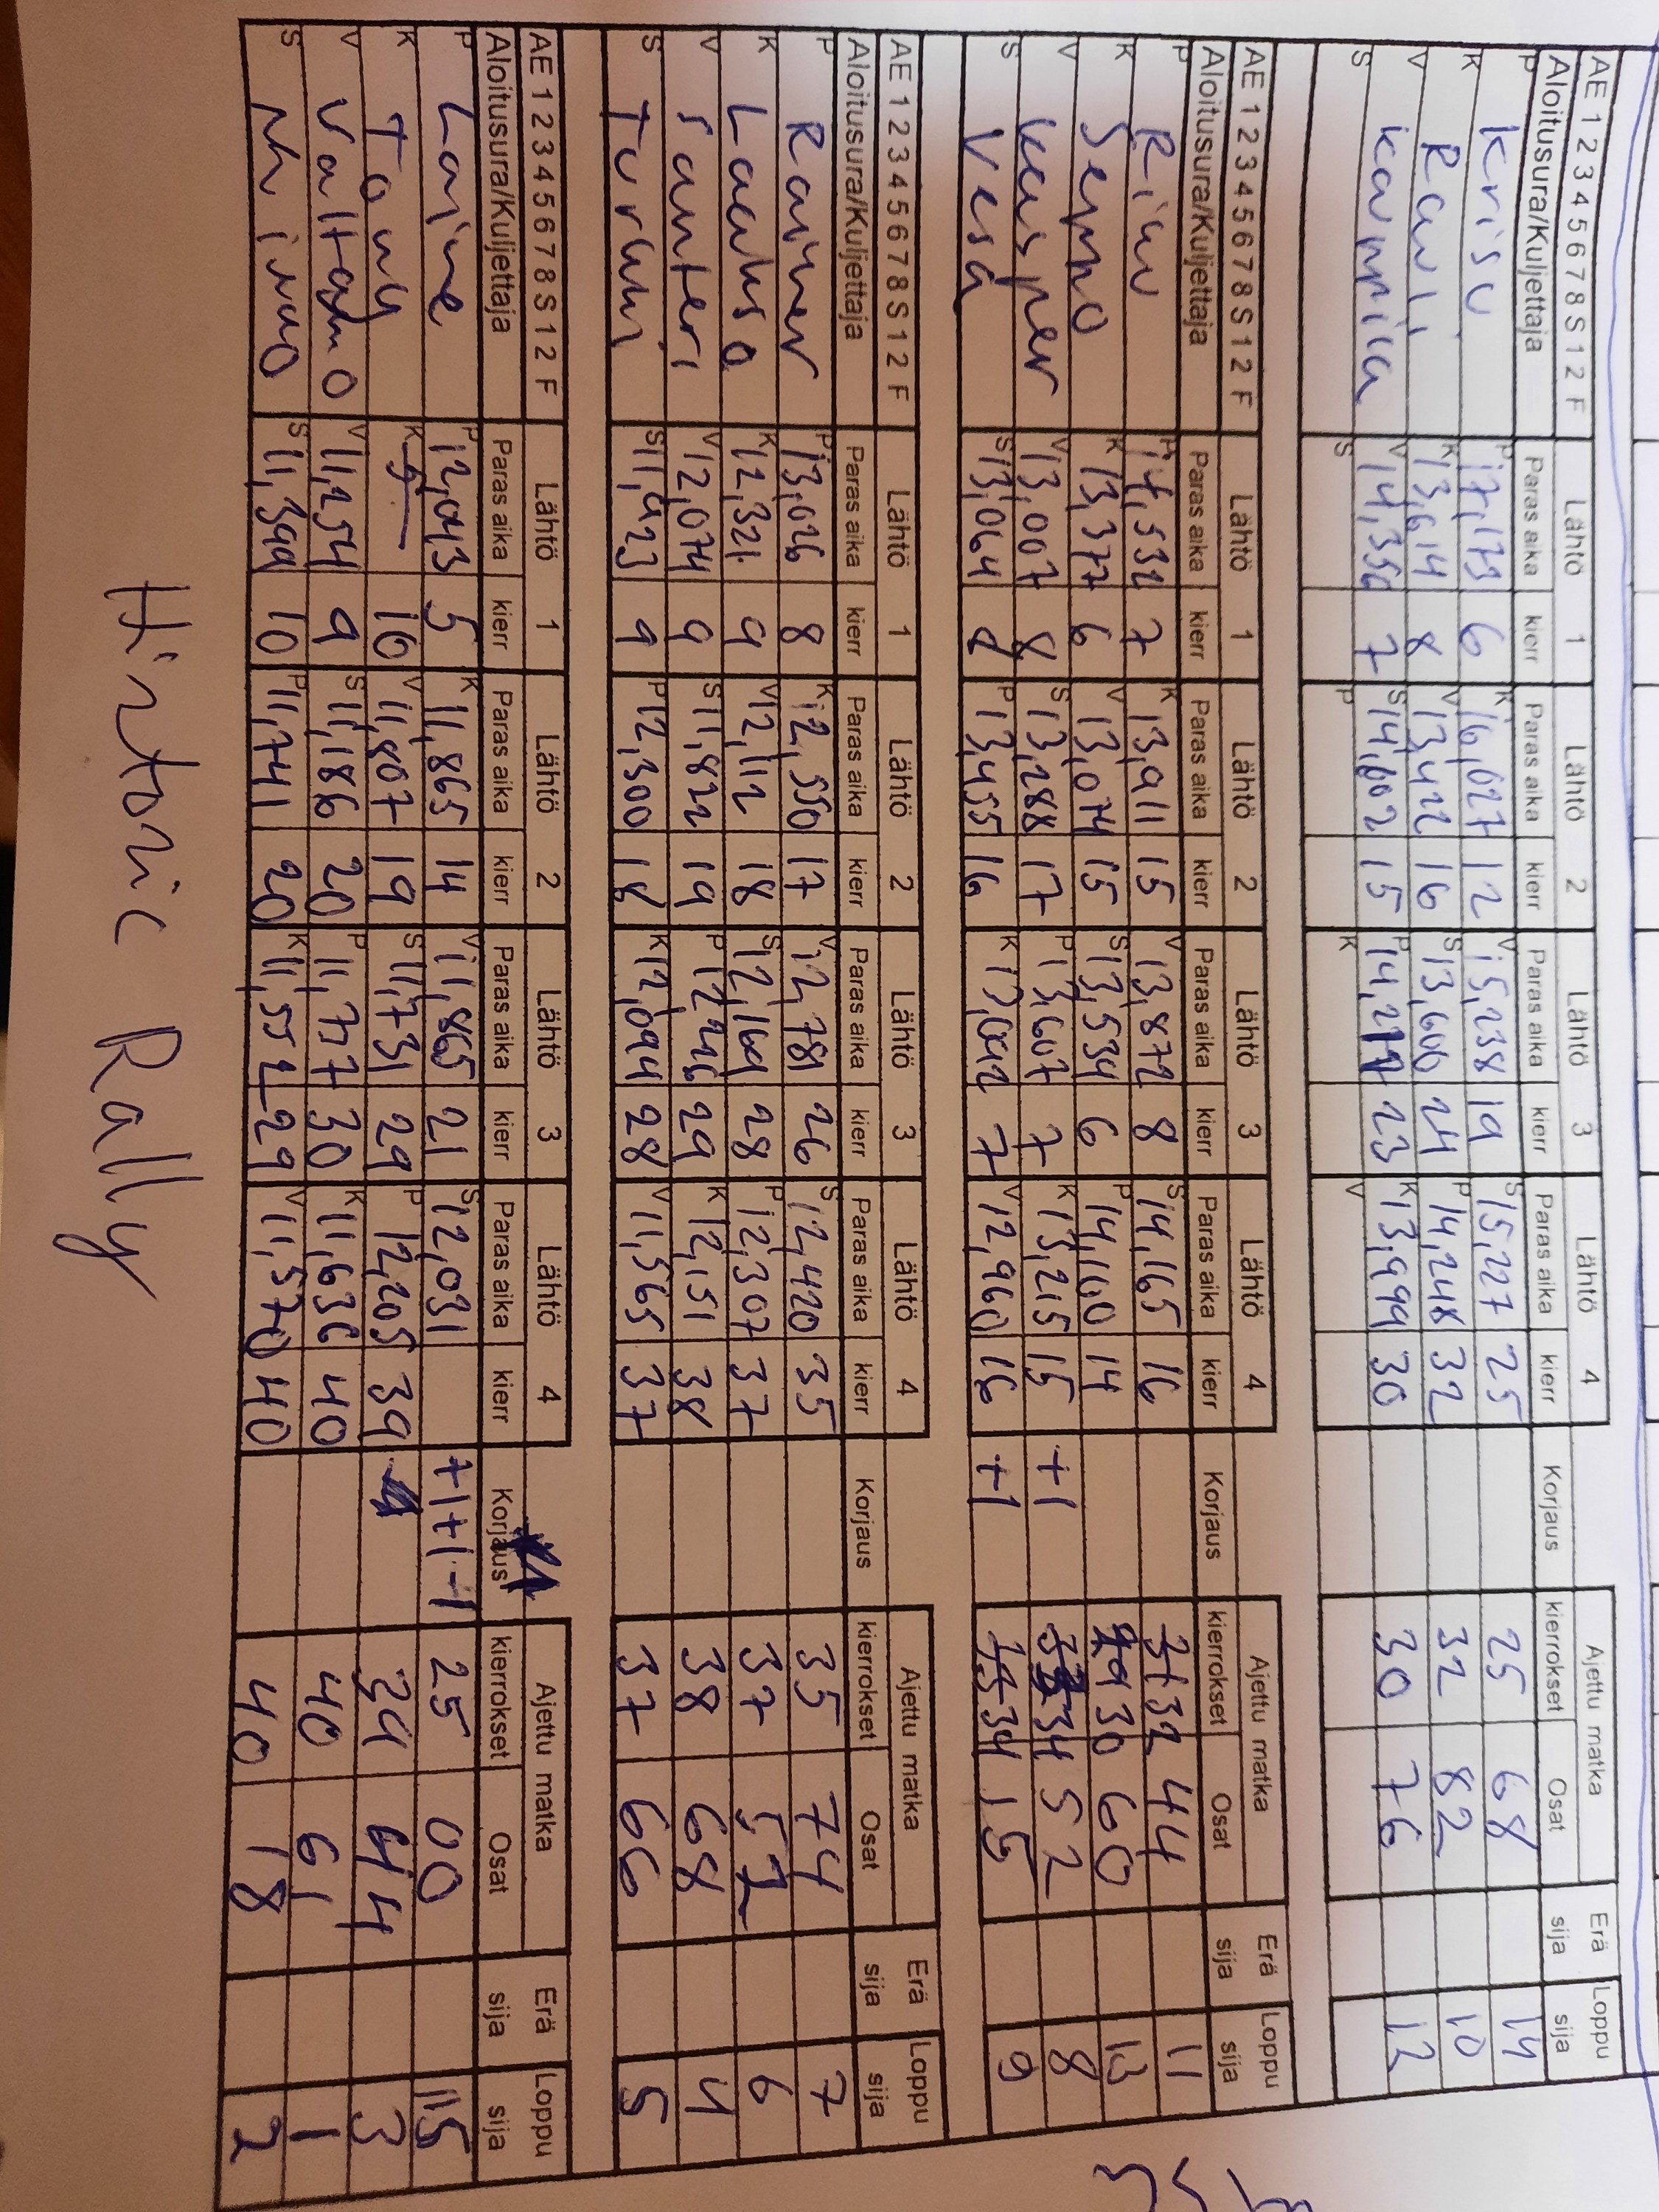 AE 1 2 3 4 5 6 7 8 S 1 2 F Lähtö 1 Lähtö 2 Lähtö 3 Lähtö 4 Ajettu matka Erä Loppu
Aloitusura/Kuljettaja Paras aika kierr Paras aika kierr Paras aika kierr Paras aika kierr Korjaus kierrokset Osat sija sija
P Krisu P 17,173 6 K 16,027 12 V 15,238 19 S 15,227 25 25 68 14
K Rauli K 13,614 8 V 13,422 16 S 13,600 24 P 14,248 32 32 82 10
V V 14,356 7 S 14,002 15 P 23 K 13,999 30 30 76 12
S S P K V
AE 1 2 3 4 5 6 7 8 S 1 2 F Lähtö 1 Lähtö 2 Lähtö 3 Lähtö 4 Ajettu matka Erä Loppu
Aloitusura/Kuljettaja Paras aika kierr Paras aika kierr Paras aika kierr Paras aika kierr Korjaus kierrokset Osat sija sija
P P 14,532 7 K 13,911 15 V 13,872 8 S 14,165 16 32 44 11
K Seppo K 13,377 6 V 13,074 15 S 13,534 6 P 14,160 14 30 60 13
V Kasper V 13,007 8 S 13,288 17 P 13,607 7 K 13,215 15 +1 34 52 8
S Vesa S 13,064 8 P 13,455 16 K 7 V 12,960 16 +1 34 15 9
AE 1 2 3 4 5 6 7 8 S 1 2 F Lähtö 1 Lähtö 2 Lähtö 3 Lähtö 4 Ajettu matka Erä Loppu
Aloitusura/Kuljettaja Paras aika kierr Paras aika kierr Paras aika kierr Paras aika kierr Korjaus kierrokset Osat sija sija
P Rainer P 13,026 8 K 12,550 17 V 12,781 26 S 12,420 35 35 74 7
K Laakso K 12,321 9 V 12,112 18 S 12,169 28 P 12,307 37 37 57 6
V Santeri V 12,074 9 S 11,822 19 P 12,246 29 K 12,151 38 38 68 4
S Turkki S 11,923 9 P 12,300 18 K 12,094 28 V 11,565 37 37 66 5
AE 1 2 3 4 5 6 7 8 S 1 2 F Lähtö 1 Lähtö 2 Lähtö 3 Lähtö 4 Ajettu matka Erä Loppu
Aloitusura/Kuljettaja Paras aika kierr Paras aika kierr Paras aika kierr Paras aika kierr Korjaus kierrokset Osat sija sija
P Laine P 12,043 5 K 11,865 14 V 11,865 21 S 12,031 +1+1+1 25 00 15
K Tony K 10 V 11,807 19 S 11,731 29 P 12,205 39 44 3
V Valtamo V 11,254 9 S 11,186 20 P 11,757 30 K 11,636 40 40 61 1
S S 11,399 10 P 11,741 20 K 11,552 29 V 11,570 40 40 18 2
Historic Rally